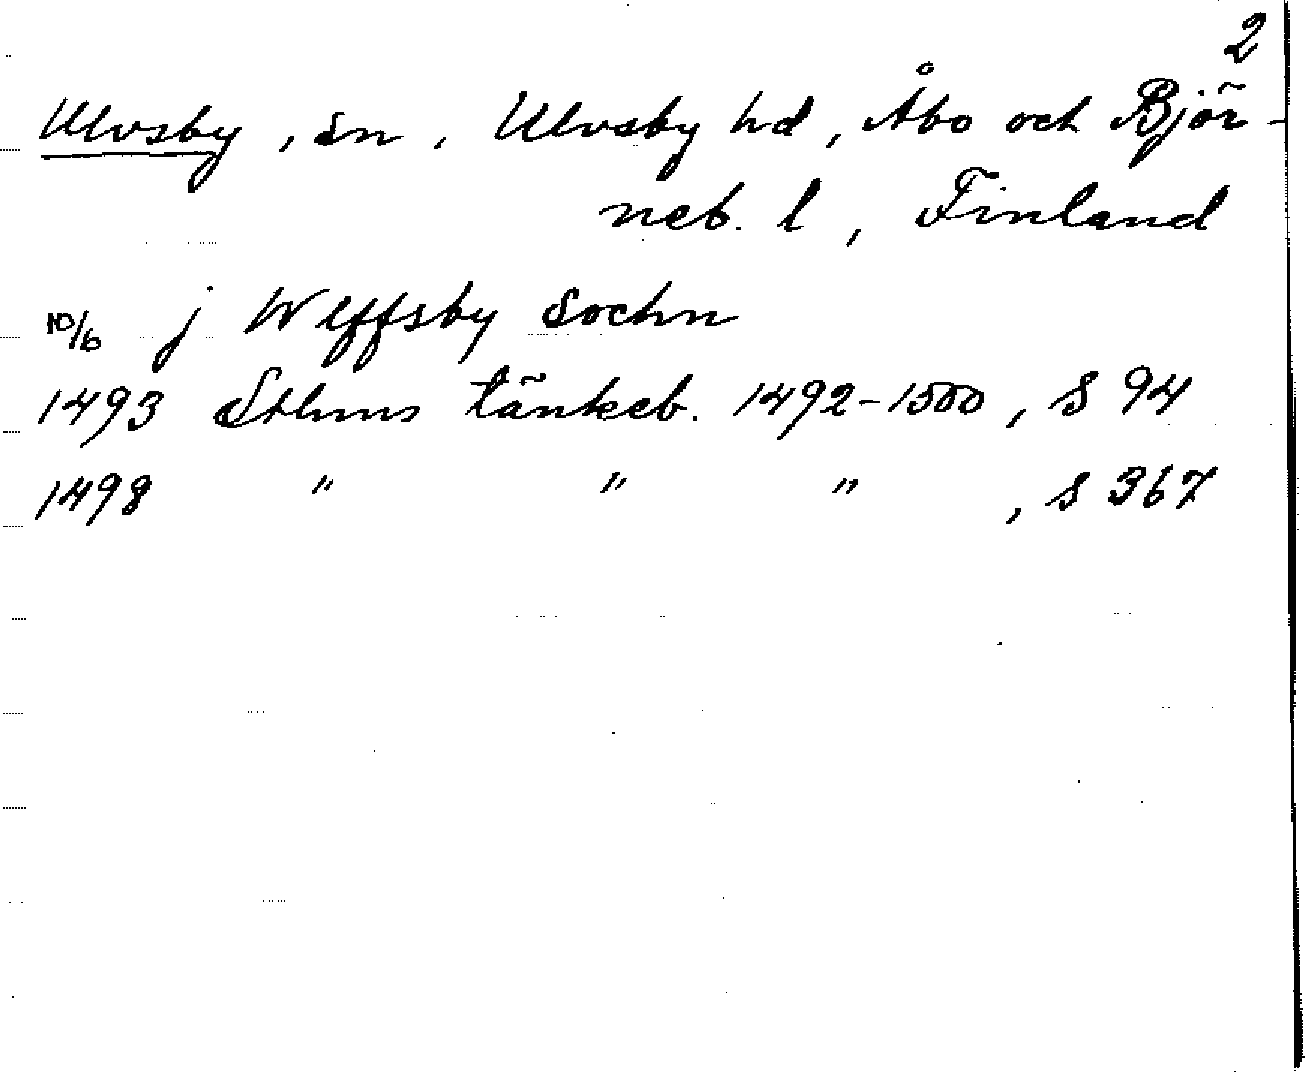 2
Ulvsby, sn, Ulvsby hd, Åbo och Björ-
neb. l, Finland
10/6 j Wlffsby Sochn
1493 Sthms tänkeb. 1492-1500, S 94
1498 " " ", S 367